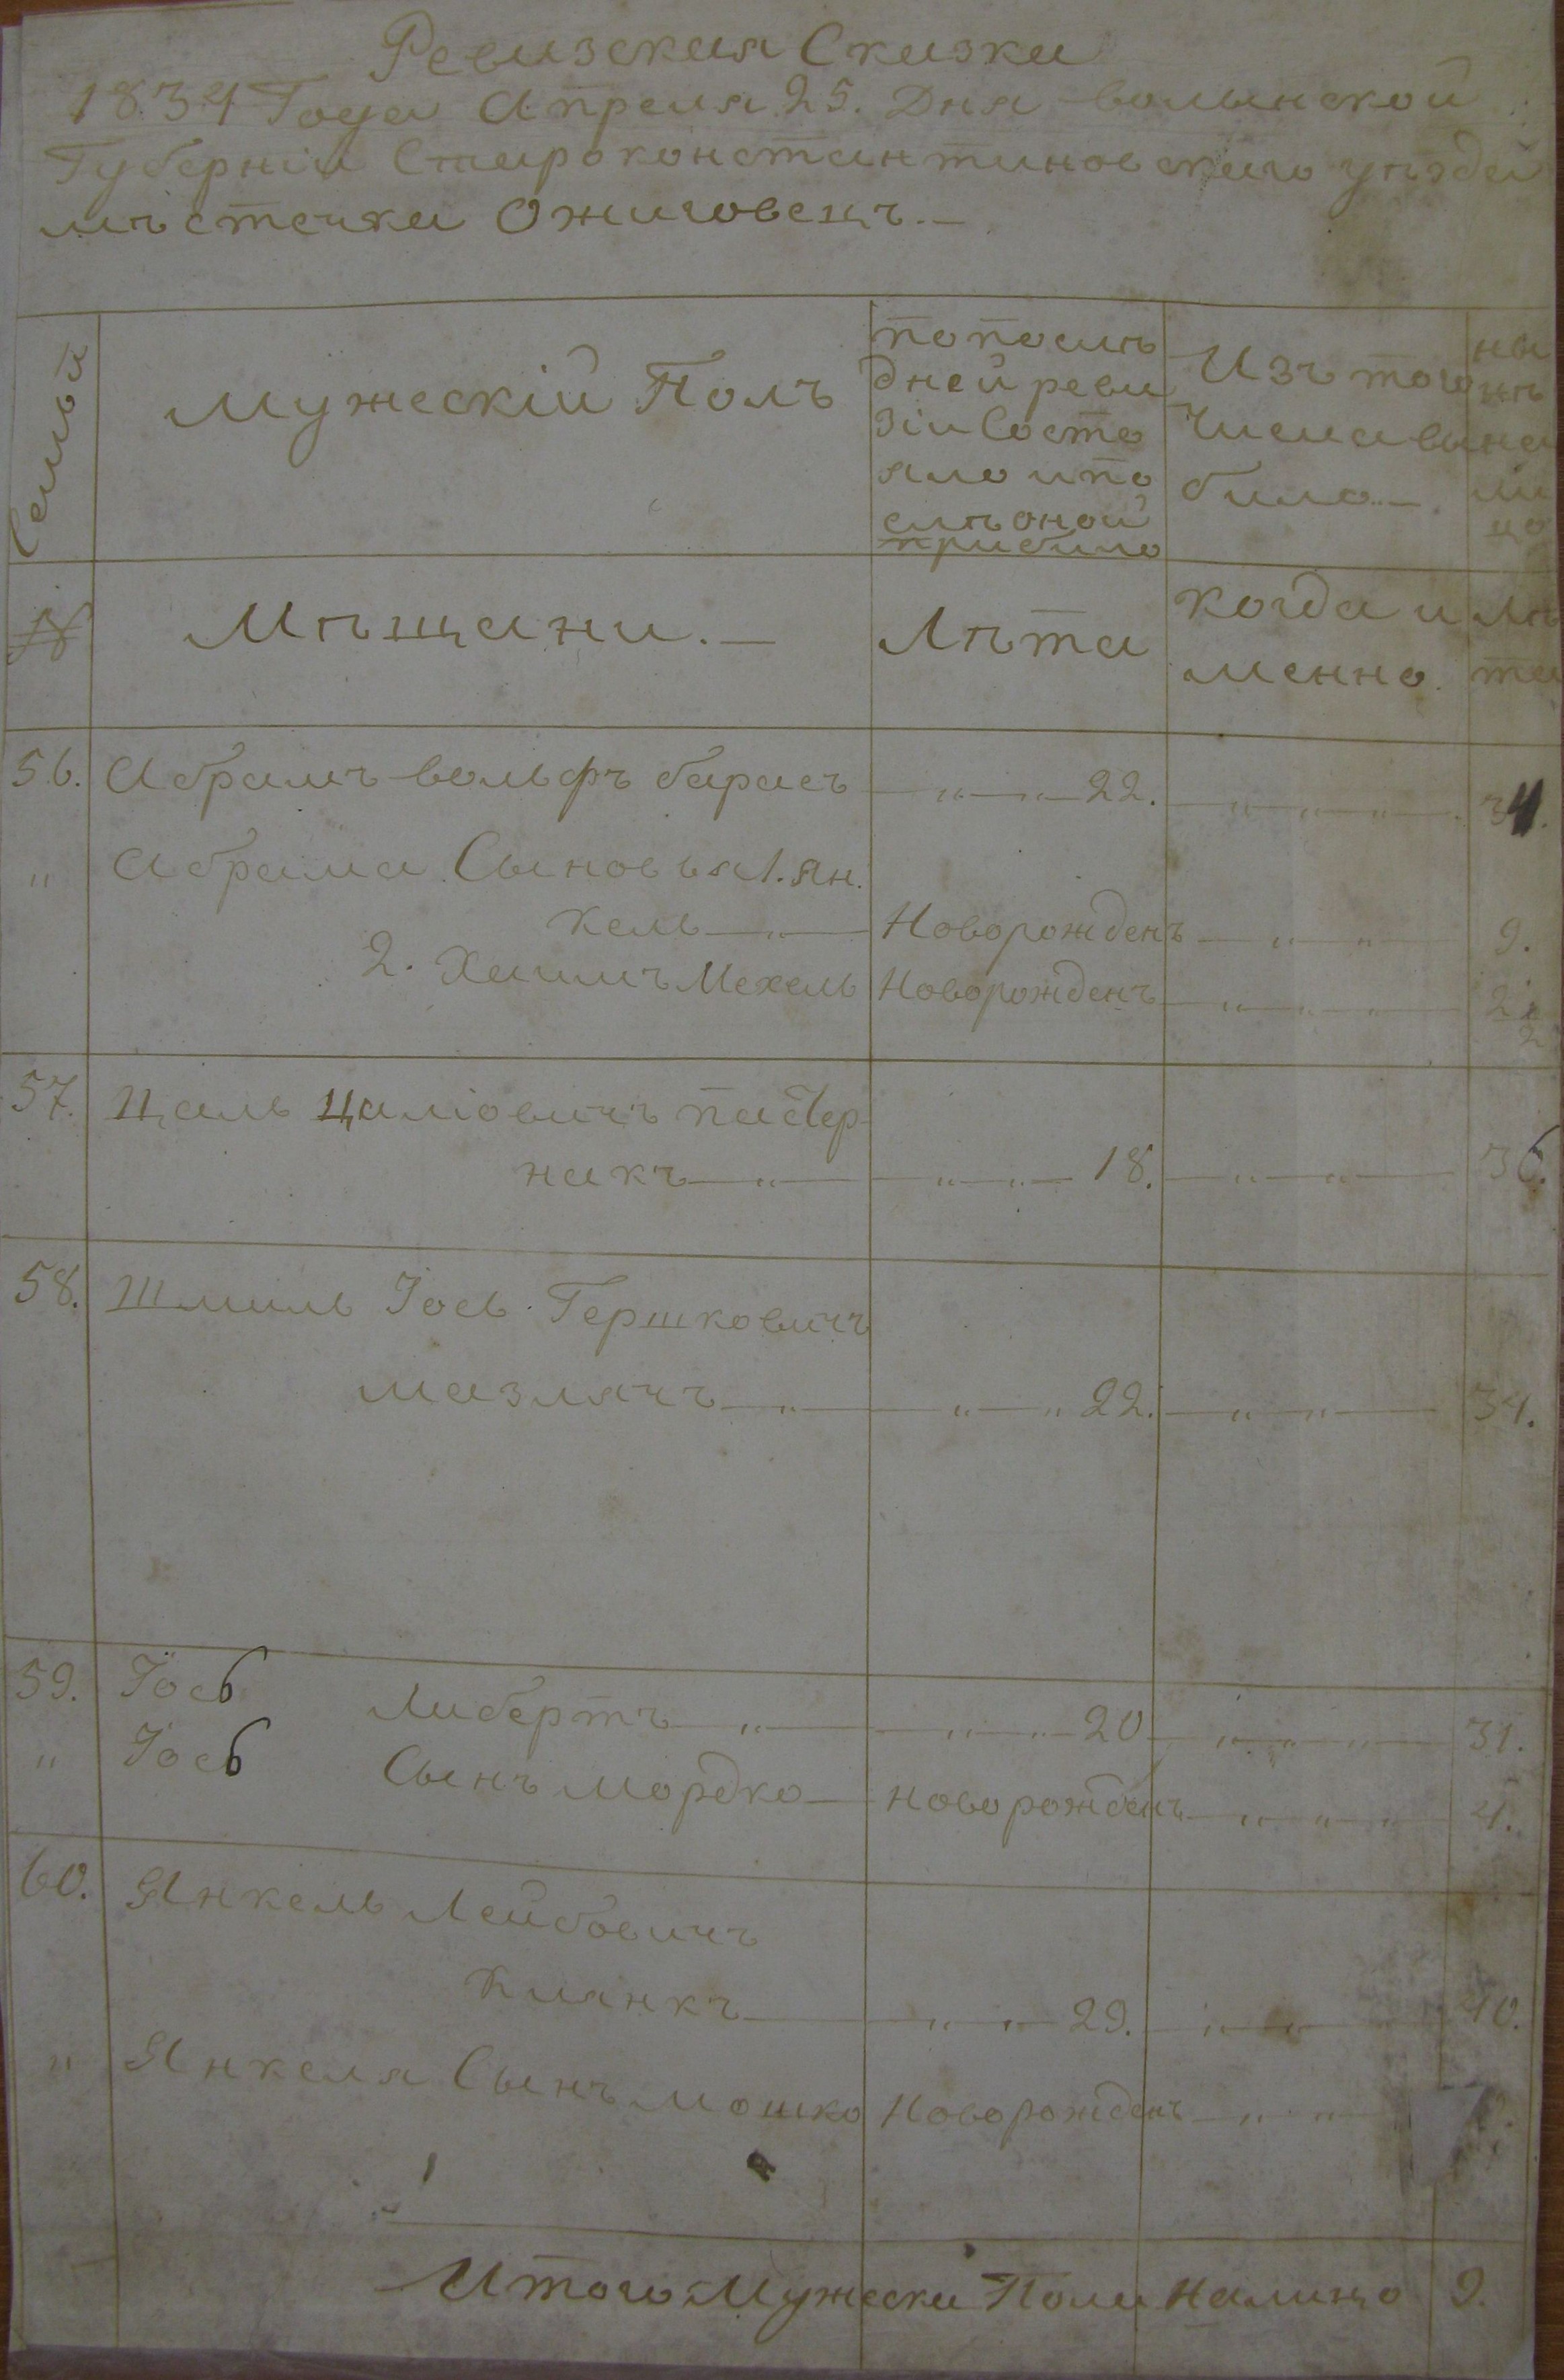 Ревизская Сказка
1834 Года Апреля 25. Дня волынской
Губернiи Староконстантиновского уѣзда
мѣстечка Ожиговецъ.—
Семьи
Мужескiй Полъ
попослѣ
дней реви
зiи Состо
яло и по
слѣ оной
прибило
Изъ того
Числа вы
било—.
ны
нѣ
на
ли
цо
№
Мѣщани.—
Лѣта
когда и
менно.
лѣ
та
56. Абрамъ вольфъ барасъ —„—„— 22. —„—„—„— 34.
„ Абрама Сыновья 1. Ян.
кель —„— Новорожденъ —„—„— 9.
2. Хаимъ Мехель Новорожденъ —„—„—„— 2 1/2
57. Цаль Цалiовичъ пастер
накъ —„— —„—„— 18. —„—„— 36.
58. Шмиль Iось Гершковичъ
мазлячъ —„— —„—„ 22. —„—„— 34.
59. Iось Либертъ —„— —„—„— 20 „—„—„— 31.
„ Iось Сынъ мордко — новорожденъ —„—„—„ 4.
60. Янкель Лейбовичъ
Клянкъ — —„—„— 29. —„—„— 40.
„ Янкеля Сынъ мошко Новорожденъ —„—„—
Итого Мужеска Пола налицо 9.